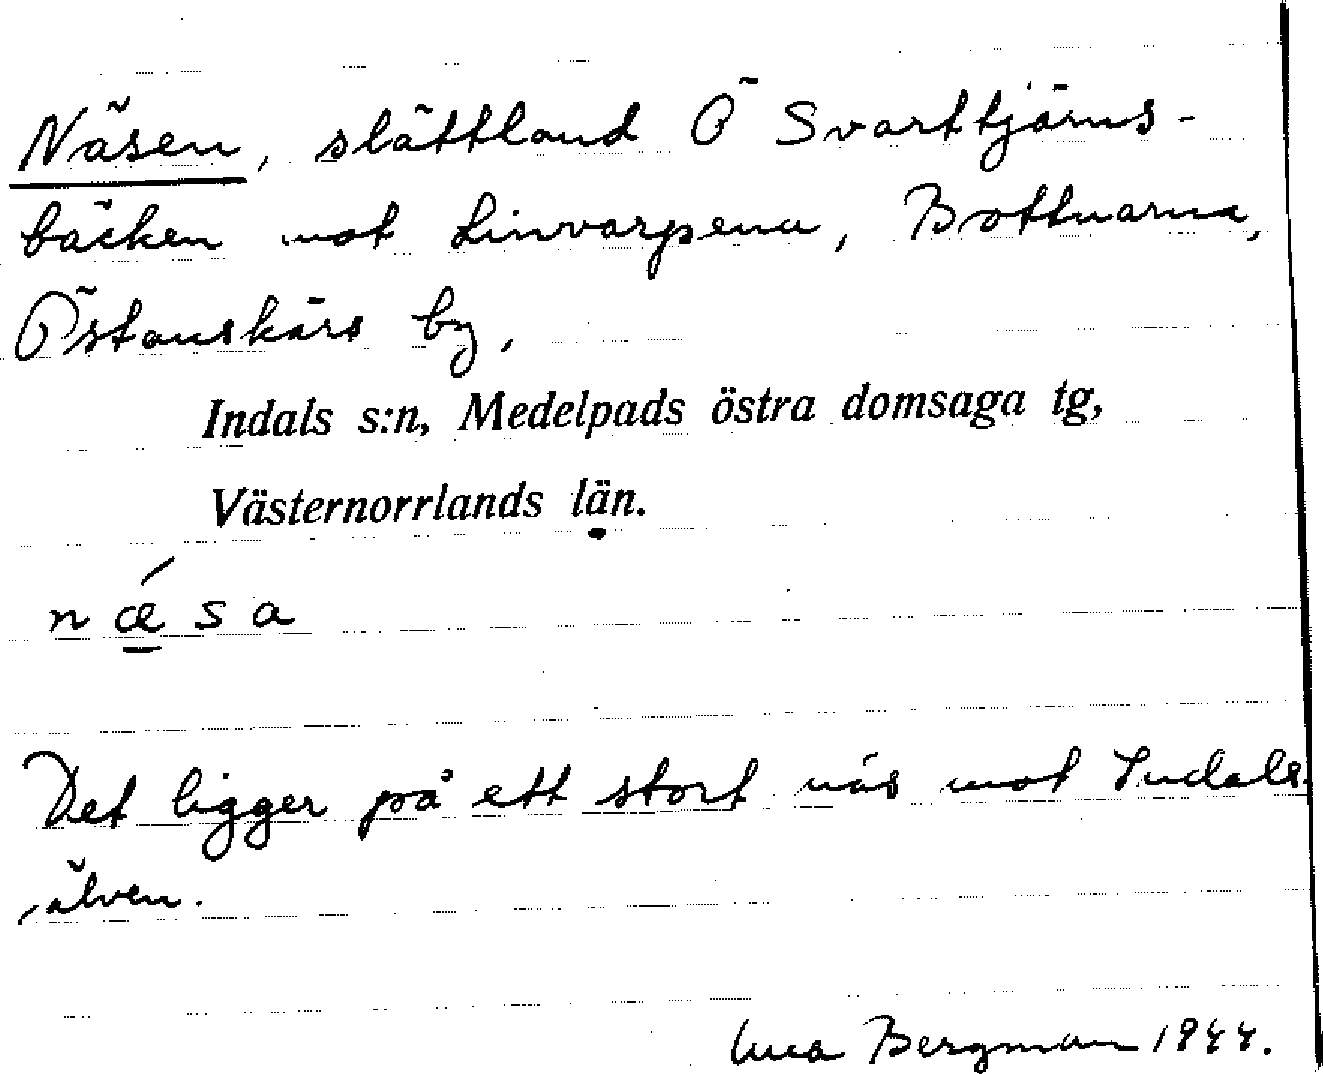 Näsen, slåttland Ö Svarttjärns-
bäcken mot Linvarpena, Bottnarna,
Östanskärs by,
Indals s:n, Medelpads östra domsaga tg,
Västernorrlands län.
n ǽ s a
Det ligger på ett stort näs mot Indals
älven.
Bergman 1944.